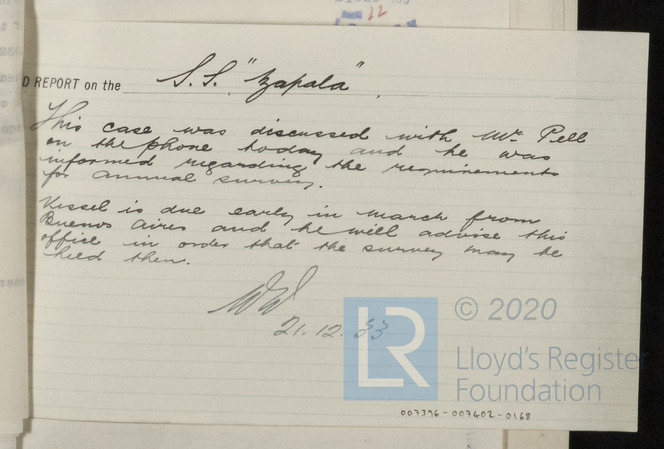 22
D REPORT on the S.S. "Zapala".
This case was discussed with Mr. Pell
on the phone today and he was
informed regarding the requirements
for annual survey.
Vessel is due early in March from
Buenos Aires and he will advise this
office in order that the survey may be
held then.
21.12.33
LR
© 2020
Lloyd's Register
Foundation
007396-007402-0168